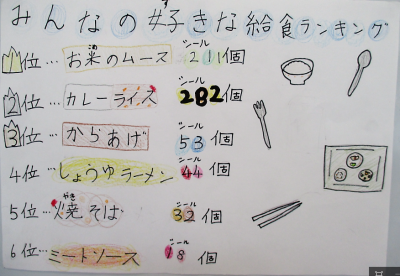 みんなの好きな給食ランキング
1位…お米のムース シール211個
2位…カレーライス シール282個
3位…からあげ シール53個
4位…しょうゆラーメン シール44個
5位…焼そば シール32個
6位…ミートソース シール18個